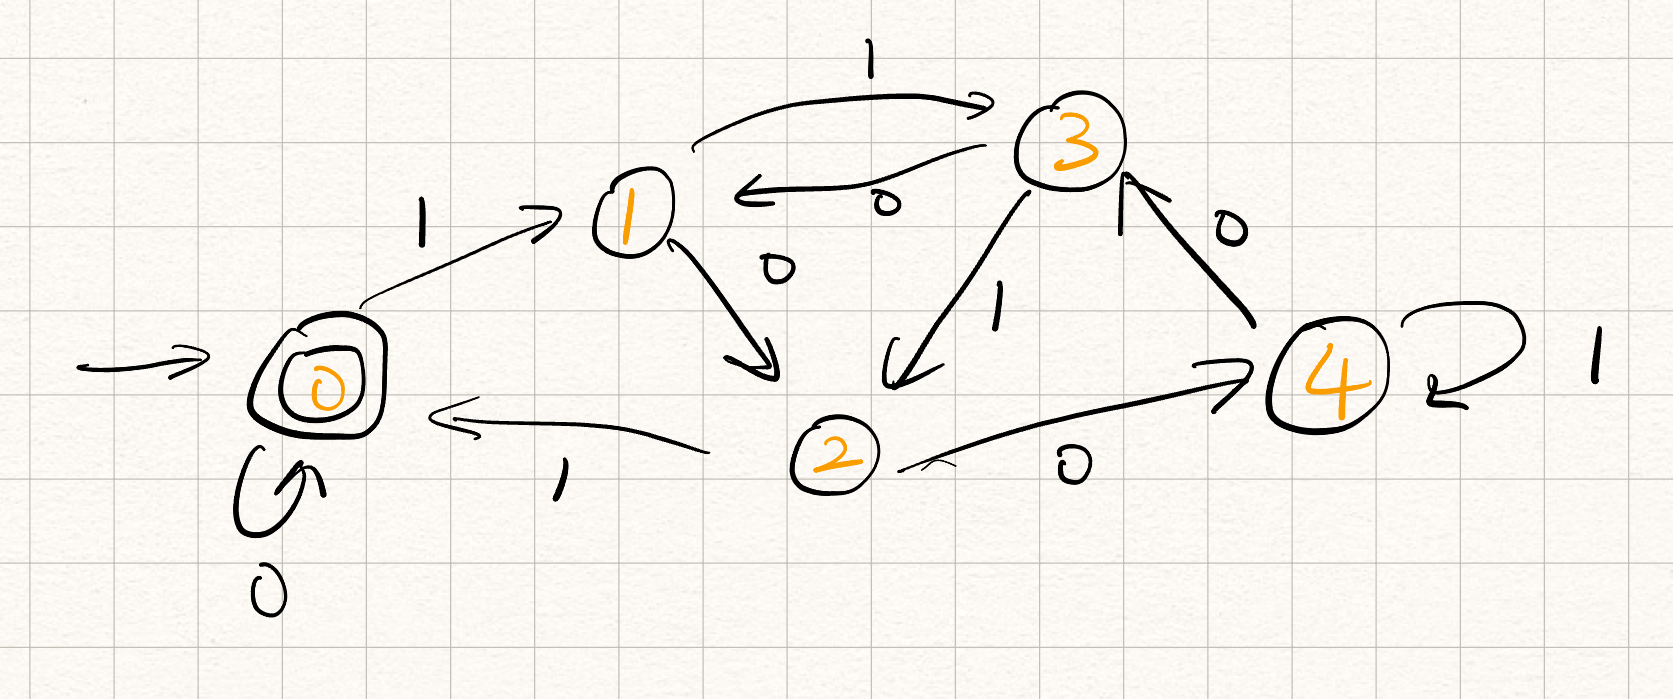 1
3
1
0
1
0
0
1
0
4
1
2
1
0
0